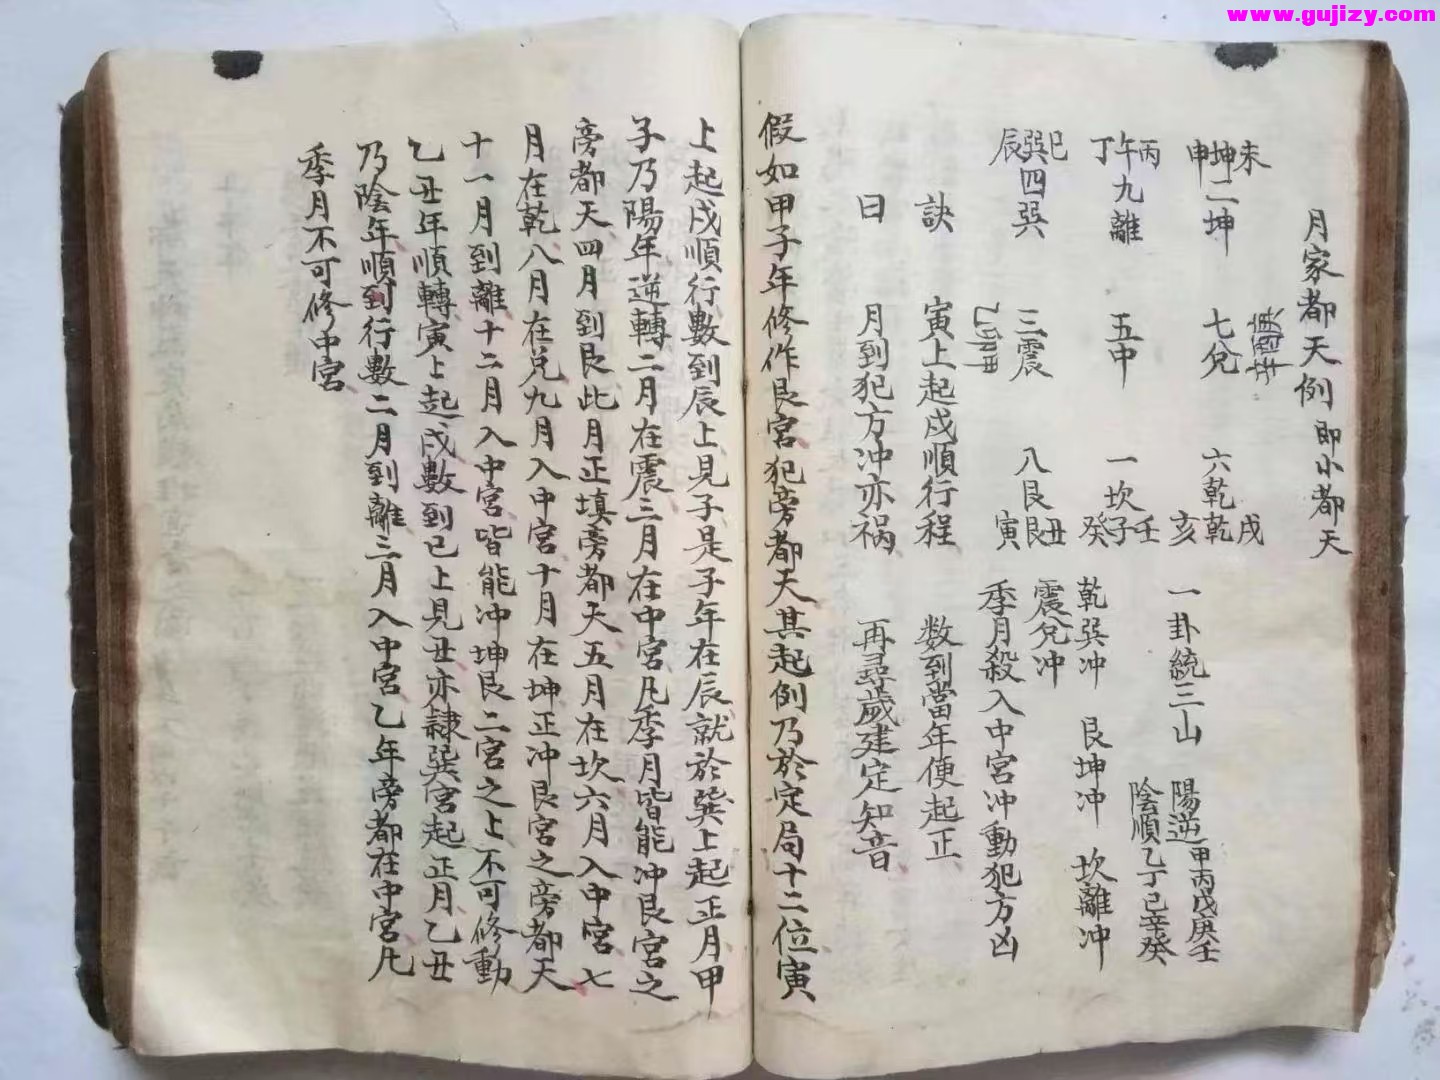 www.gujizy.com
月家都天例即小都天
未坤申二坤 七兌 庚酉辛 六乾乾戌亥 一卦統三山 陽逆甲丙戊庚壬
陰順乙丁己辛癸
丙午丁九離 五中 一坎壬子癸 乾巽冲 艮坤冲 坎離冲
震兌冲
巳巽辰四巽 三震 甲卯乙 八艮艮丑寅 季月殺入中宮冲動犯方凶
訣 寅上起戌順行程 数到當年便起正
曰 月到犯方冲亦祸 再尋歲建定知音
假如甲子年修作艮宮犯旁都天其起例乃於定局十二位寅
上起戌順行數到辰上見子是子年在辰就於巽上起正月甲
子乃陽年逆轉二月在震三月在中宮凡季月皆能冲艮宮之
旁都天四月到艮此月正填旁都天五月在坎六月入中宮七
月在乾八月在兌九月入中宮十月在坤正冲艮宮之旁都天
十一月到離十二月入中宮皆能冲坤艮二宮之上不可修動
乙丑年順轉寅上起戌數到巳上見丑亦隸巽宮起正月乙丑
乃陰年順到行數二月到離三月入中宮乙年旁都在中宮凡
季月不可修中宮